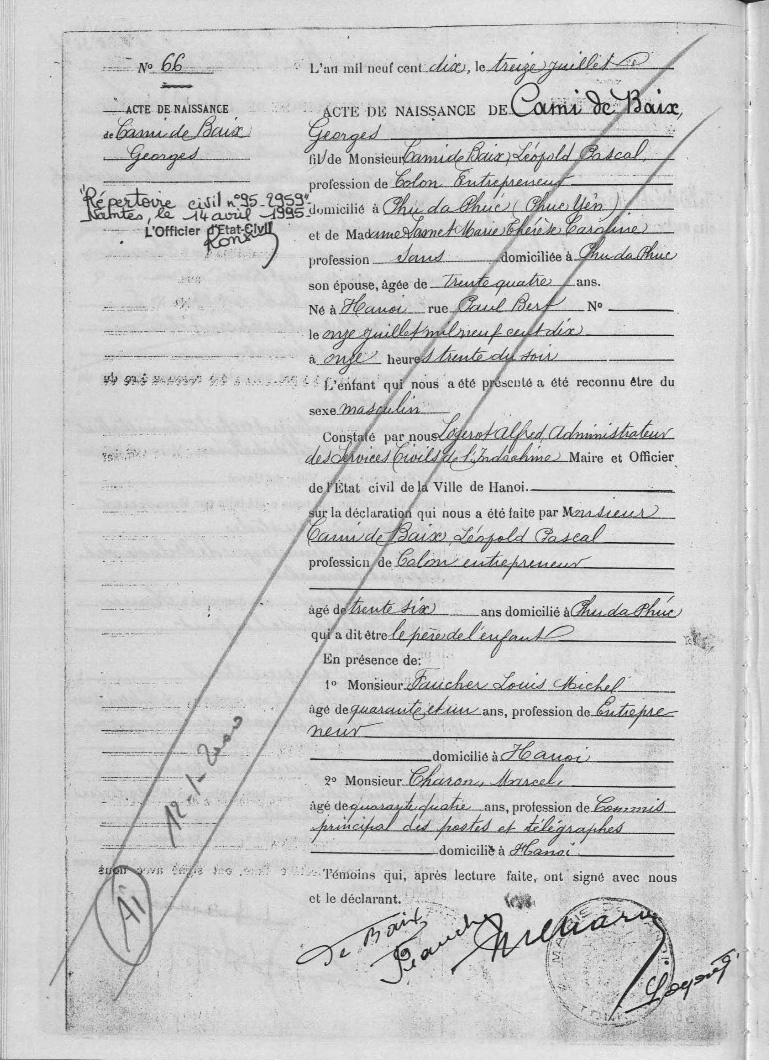 No 66
ACTE DE NAISSANCE
de Cami de Baix
Georges
"Répertoire civil n° 95-2959"
Nantes, le 14 avril 1995.
L'Officier d'Etat-Civil
L'an mil neuf cent dix, le treize juillet
ACTE DE NAISSANCE DE Cami de Baix,
Georges
fil de Monsieur Cami de Baix, Léopold Pascal,
profession de Colon Entrepreneur
domicilié à Phu da Phúc (Phuc Yên)
et de Madame Marie Thérèse Caroline
profession Sans domiciliée à Phu da Phuc
son épouse, âgée de trente quatre ans.
Né à Hanoi rue Paul Bert No
le onze juillet mil neuf cent dix
à onze heures trente du soir
L'enfant qui nous a été présenté a été reconnu être du
sexe masculin
Constaté par nous Logerot Alfred, Administrateur
des Services Civils de l'Indochine Maire et Officier
de l'État civil de la Ville de Hanoi.
sur la déclaration qui nous a été faite par Monsieur
Cami de Baix, Léopold Pascal
profession de Colon entrepreneur
âgé de trente six ans domicilié à Phu da Phúc
qui a dit être le père de l'enfant
En présence de:
1o Monsieur Faucher Louis Michel
âgé de quarante et un ans, profession de Entrepre-
neur
domicilié à Hanoi
2o Monsieur Charon, Marcel,
âgé de quarante quatre ans, profession de Commis
principal des postes et télégraphes
domicilié à Hanoi
Témoins qui, après lecture faite, ont signé avec nous
et le déclarant.
12-1-2000
Ai
de Baix